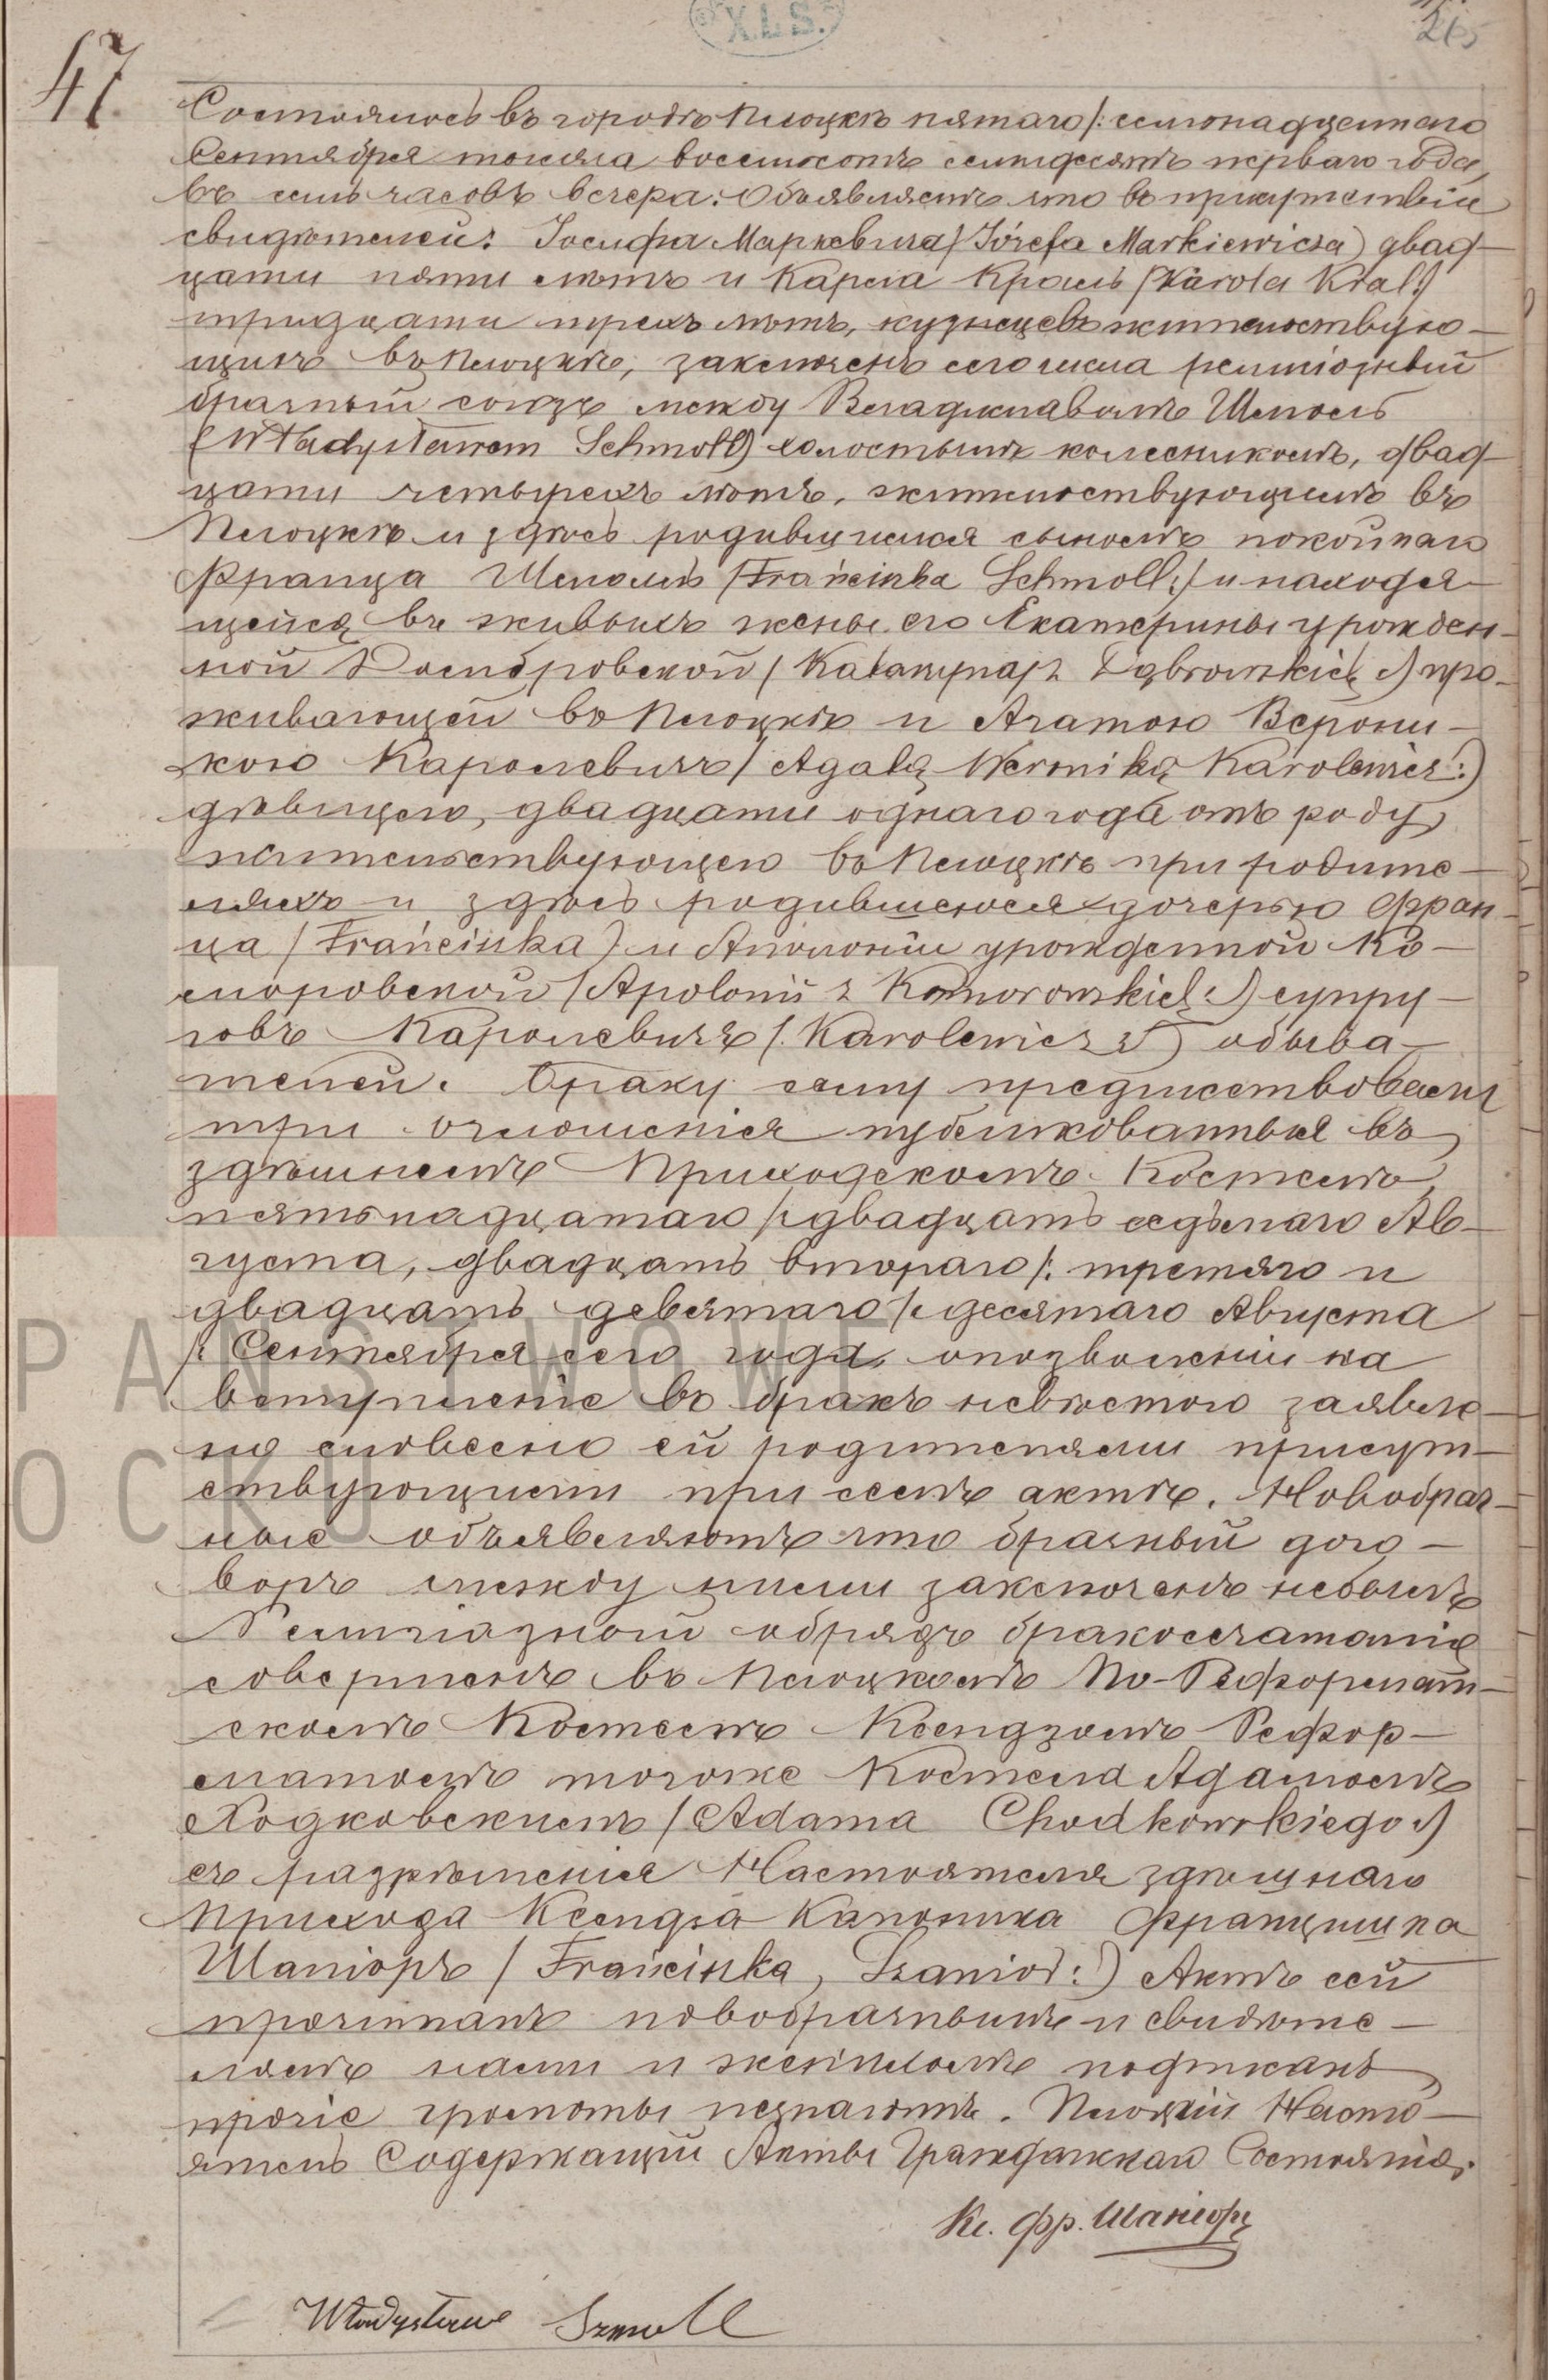 X.L.S.
265
47
Состоялось въ городѣ Плоцкѣ пятаго /: семнадцатаго
Сентября тысяча восемьсотъ семьдесятъ перваго года,
въ семь часовъ вечера. Объявляемъ что въ присутствіи
свидѣтелей: Іосифа Маркевича / Józefa Markiewicza) двад-
цати пяти лѣтъ и Карла Кроль /Karola Kral:/
тридцати трехъ лѣтъ, кузнецевъ жительствую-
щихъ въ Плоцкѣ, заключенъ сего числа религіозный
брачный союзъ между Владиславомъ Шмоль
(Władysławem Schmoll) холостымъ колесникомъ, двад-
цати четырехъ лѣтъ, жительствующимъ въ
Плоцкѣ и здѣсь родившимся сыномъ покойнаго
Франца Шмоль /Franciszka Schmoll:/ и находя-
щейся въ живыхъ жены его Екатерины урожден-
ной Домбровской / Katarzyna z Dąbrowskich :) про-
живающей въ Плоцкѣ и Агатою Верони-
кою Каролевичъ / Agatą Weroniką Karolewicz:)
дѣвицею, двадцати однаго года отъ роду,
жительствующею въ Плоцкѣ при родите-
ляхъ и здѣсь родившеюся дочерью Фран-
ца / Franciszka) и Аполоніи урожденной Ко-
моровской /Apolonii z Komorowskich :) супру-
говъ Каролевичъ /: Karolewicz :) обыва-
телей. Браку сему предшествовали
три оглошенія публикованныя въ
здѣшнемъ Приходскомъ Костелѣ,
пятьнадцатаго /: двадцать седьмаго Ав-
густа, двадцать втораго /: третяго и
двадцать девятаго /: десятаго Августа
/: Сентября сего года, о позволеніи на
вступленіе въ бракъ невѣстою заявле-
но словесно ей родителями присут-
ствующими при семъ актѣ. Новобрач-
ные объявляютъ что брачный дого-
воръ между ними заключенъ небылъ
Религіозной обрядъ бракосочатанія
совершенъ въ Плоцкомъ По-Реформат-
скомъ Костелѣ Ксендзомъ Рефор-
матомъ тогоже Костела Адамомъ
Ходковскимъ / Adama Chodkowskiego :)
съ разрѣшенія Настоятеля здѣшнаго
Прихода Ксендза Каноника Францишка
Шаніоръ / Franciszka, Szanior:) Актъ сей
прочитанъ новобрачнымъ и свидѣте-
лямъ нами и женихомъ подписанъ,
прочіе грамоты незнаютъ. Плоцкій Насто-
ятель Содержащій Акты Гражданскаго Состоянія.
Кс. Фр. Шаніоръ
Władysław Szmoll
PAŃSTWOWE
OCKU